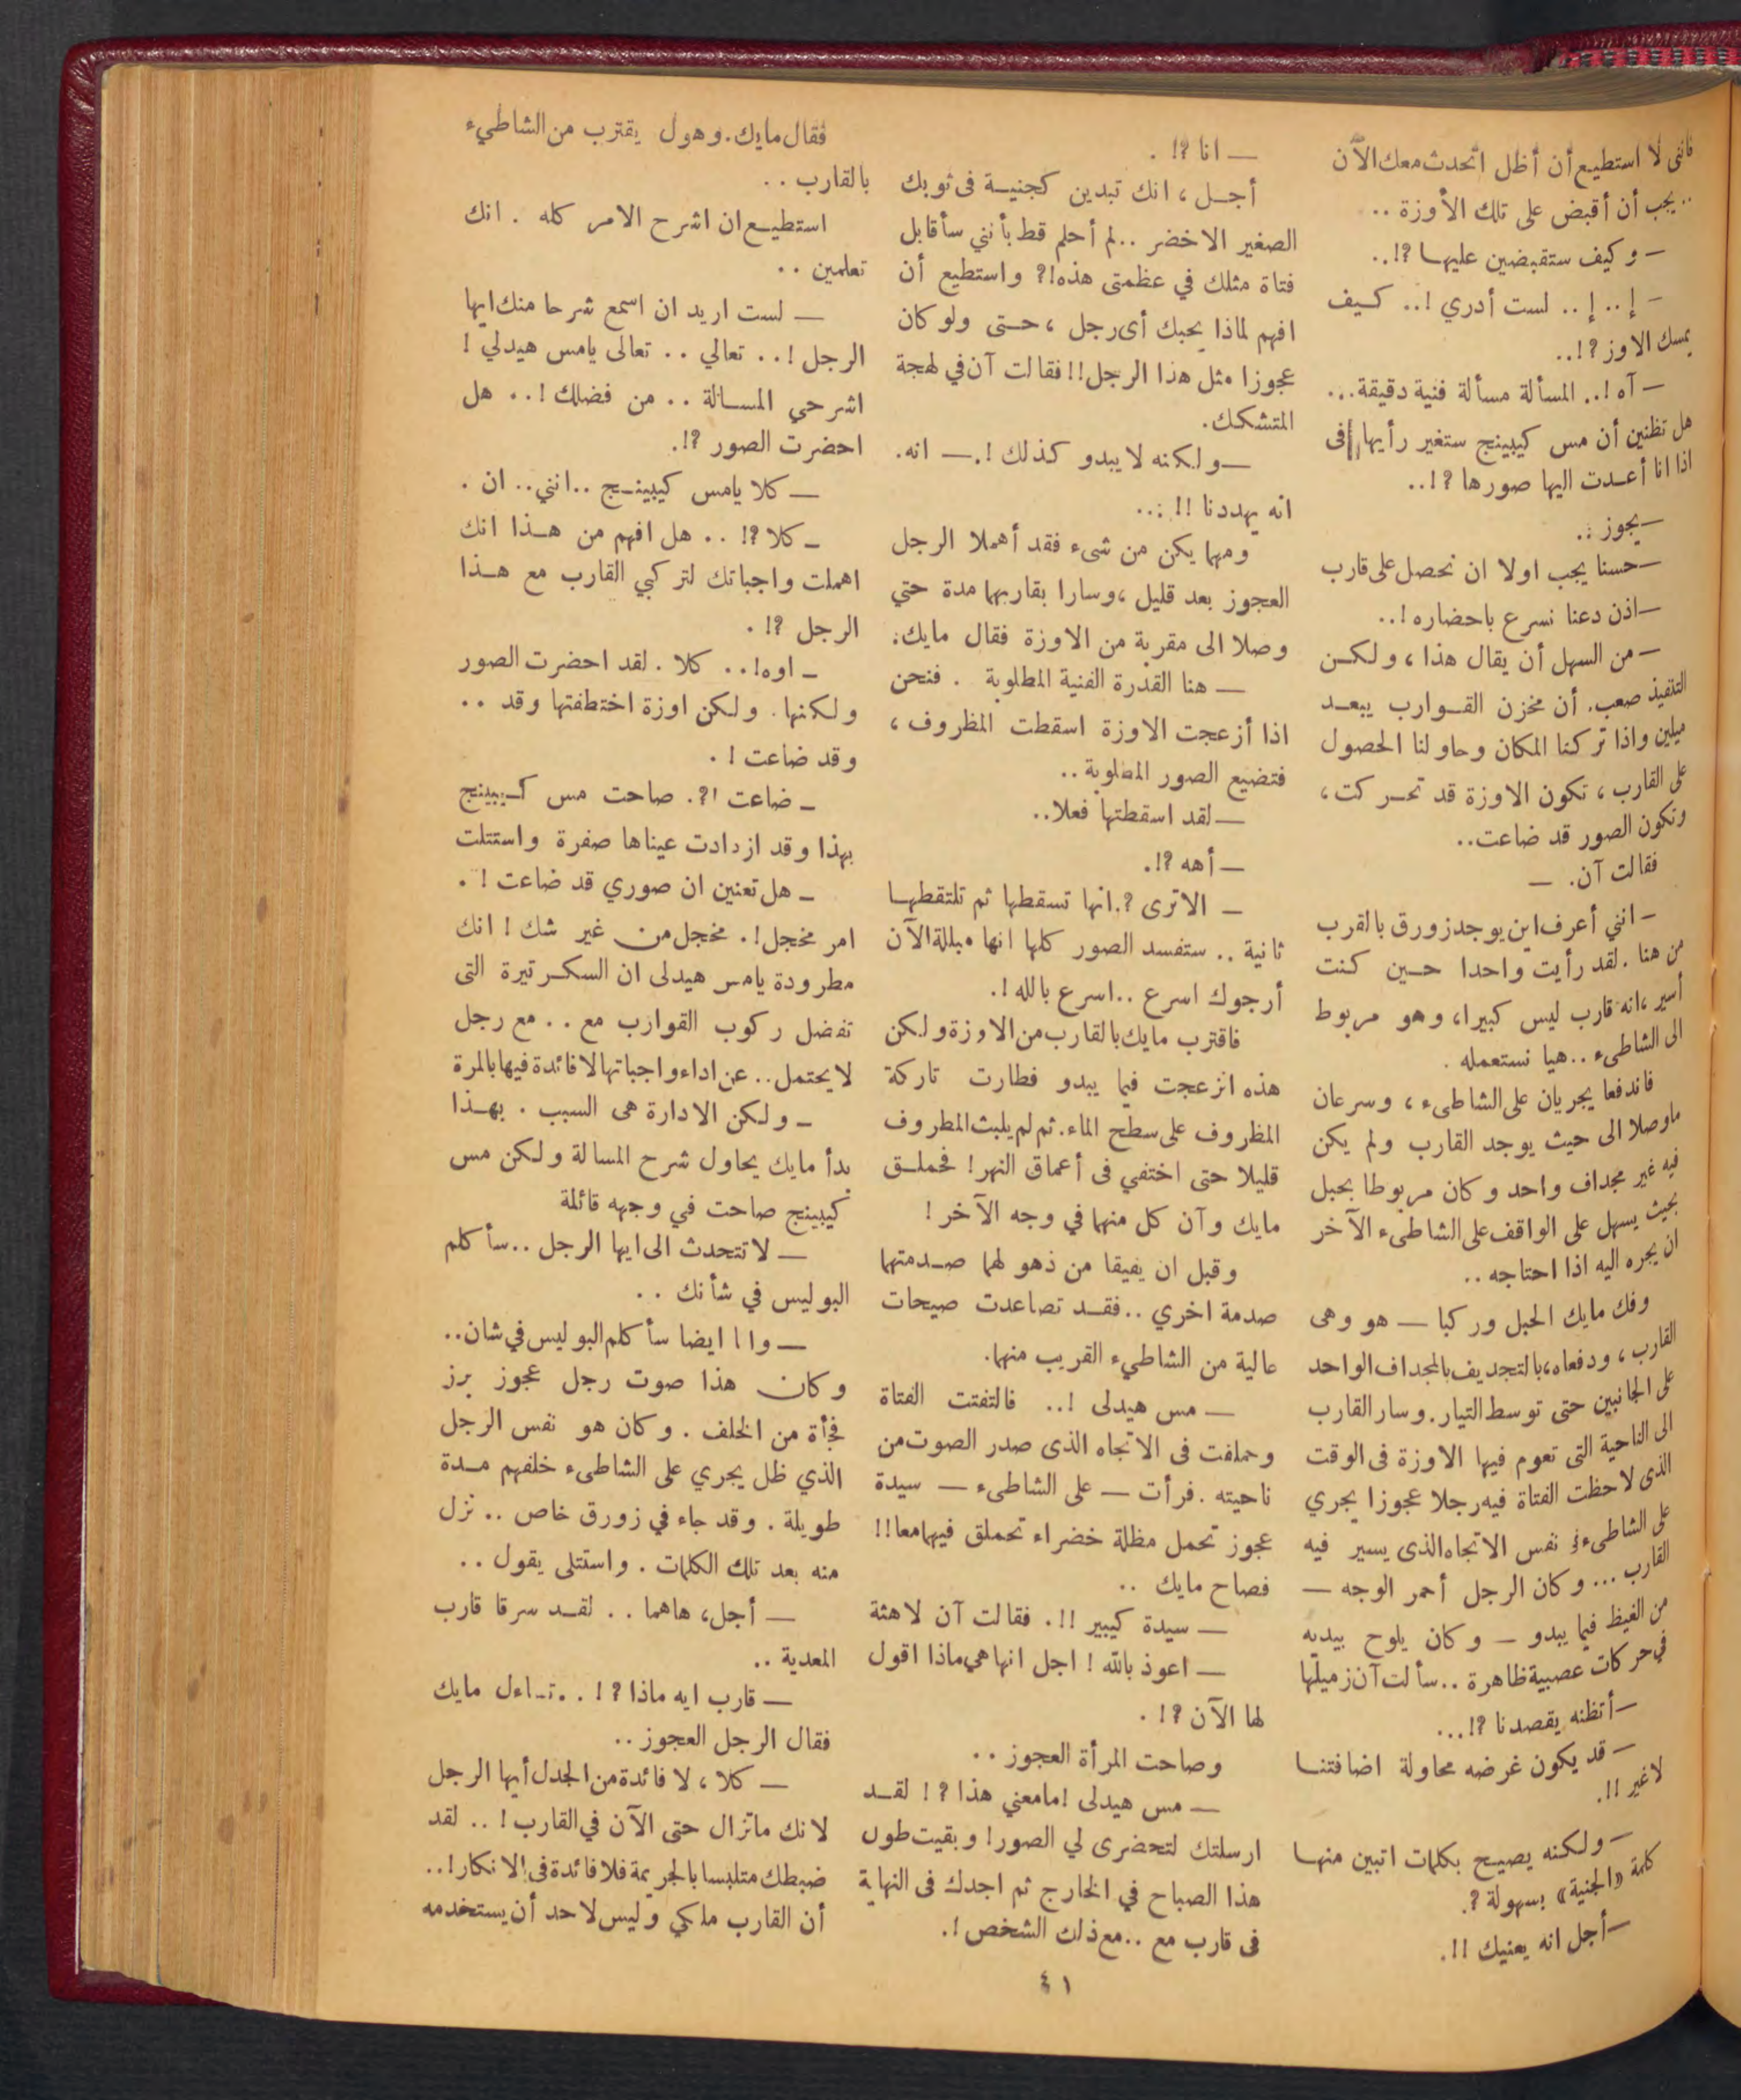 فاننى لا استطيع أن أظل اتحدث معك الآن
.. يجب أن أقبض على تلك الأوزة ..
— وكيف ستقبضين عليها ؟!..
— إ .. إ .. لست أدري !.. كيف
يمسك الاوز ؟!..
— آه !.. المسألة مسألة فنية دقيقة...
هل تظنين أن مس كيبينج ستغير رأيها فى
اذا انا أعدت اليها صورها ؟!..
— يجوز ..
— حسنا يجب اولا ان نحصل على قارب
— اذن دعنا نسرع باحضاره !..
— من السهل أن يقال هذا ، ولكن
التنفيذ صعب. أن مخزن القوارب يبعد
ميلين واذا تركنا المكان وحاولنا الحصول
على القارب ، تكون الاوزة قد تحركت ،
وتكون الصور قد ضاعت..
فقالت آن. —
— انني أعرف اين يوجد زورق بالقرب
من هنا . لقد رأيت واحدا حين كنت
أسير ، انه قارب ليس كبيرا ، وهو مربوط
الى الشاطىء .. هيا نستعمله .
فاندفعا يجريان على الشاطىء ، وسرعان
ماوصلا الى حيث يوجد القارب ولم يكن
فيه غير مجداف واحد وكان مربوطا بحبل
بحيث يسهل على الواقف على الشاطىء الآخر
ان يجره اليه اذا احتاجه ..
وفك مايك الحبل وركبا — هو وهى
القارب ، ودفعاه ، بالتجديف بالمجداف الواحد
على الجانبين حتى توسط التيار . وسار القارب
الى الناحية التى تعوم فيها الاوزة فى الوقت
الذى لاحظت الفتاة فيه رجلا عجوزا يجري
على الشاطىء فى نفس الاتجاه الذى يسير فيه
القارب ... وكان الرجل أحمر الوجه —
من الغيظ فيما يبدو — وكان يلوح بيديه
في حركات عصبية ظاهرة .. سألت آن زميلها
— أتظنه يقصدنا ؟!...
— قد يكون غرضه محاولة اضافتنا
لا غير !!.
— ولكنه يصيح بكلمات اتبين منها
كلمة «الجنية» بسهولة ؟.
— أجل انه يعنيك !!.
— انا ؟! .
أجل ، انك تبدين كجنية فى ثوبك
الصغير الاخضر .. لم أحلم قط بأنني سأقابل
فتاة مثلك في عظمتى هذه!؟ واستطيع أن
افهم لماذا يحبك أى رجل ، حتى ولو كان
عجوزا مثل هذا الرجل!! فقالت آن في لهجة
المتشكك.
— ولكنه لا يبدو كذلك !. — انه.
انه يهددنا !! ...
ومهما يكن من شىء فقد أهملا الرجل
العجوز بعد قليل ، وسارا بقاربهما مدة حتي
وصلا الى مقربة من الاوزة فقال مايك:
— هنا القدرة الفنية المطلوبة . فنحن
اذا أزعجت الاوزة اسقطت المظروف ،
فتضيع الصور المطلوبة ..
— لقد اسقطتها فعلا..
— أهه ؟!.
— الاترى ؟. انها تسقطها ثم تلتقطها
ثانية .. ستفسد الصور كلها انها مبللة الآن
أرجوك اسرع .. اسرع بالله !.
فاقترب مايك بالقارب من الاوزة ولكن
هذه انزعجت فيما يبدو فطارت تاركة
المظروف على سطح الماء. ثم لم يلبث المظروف
قليلا حتى اختفي فى أعماق النهر ! فحملق
مايك وآن كل منهما في وجه الآخر !
وقبل ان يفيقا من ذهولهما صدمتهما
صدمة اخري .. فقد تصاعدت صيحات
عالية من الشاطيء القريب منهما.
— مس هيدلى !.. فالتفتت الفتاة
وحملقت فى الاتجاه الذى صدر الصوت من
ناحيته . فرأت — على الشاطىء — سيدة
عجوز تحمل مظلة خضراء تحملق فيهما معا!!
فصاح مايك ..
— سيدة كيبير !!. فقالت آن لاهثة
— اعوذ بالله ! اجل انها هي ماذا اقول
لها الآن ؟! .
وصاحت المرأة العجوز ..
— مس هيدلى ! مامعني هذا ؟ ! لقد
ارسلتك لتحضرى لي الصور ! وبقيت طول
هذا الصباح في الخارج ثم اجدك فى النهاية
فى قارب مع .. مع ذلك الشخص !.
فقال مايك. وهول يقترب من الشاطيء
بالقارب ..
استطيع ان اشرح الامر كله . انك
تعلمين ..
— لست اريد ان اسمع شرحا منك ايها
الرجل !.. تعالي .. تعالى يامس هيدلي !
اشرحي المسالة .. من فضلك !.. هل
احضرت الصور ؟!.
— كلا يامس كيبينج .. انني.. ان .
— كلا ؟! .. هل افهم من هذا انك
اهملت واجباتك لتركبي القارب مع هذا
الرجل ؟! .
— اوه!.. كلا . لقد احضرت الصور
ولكنها. ولكن اوزة اختطفتها وقد ..
وقد ضاعت ! .
— ضاعت !؟. صاحت مس كيبينج
بهذا وقد ازدادت عيناها صفرة واستتلت
— هل تعنين ان صوري قد ضاعت ! .
امر مخجل !. مخجل من غير شك ! انك
مطرودة يامس هيدلى ان السكرتيرة التى
تفضل ركوب القوارب مع .. مع رجل
لا يحتمل .. عن اداء واجباتها لا فائدة فيها بالمرة
— ولكن الادارة هى السبب . بهذا
بدأ مايك يحاول شرح المسالة ولكن مس
كيبينج صاحت في وجهه قائلة
— لا تتحدث الى ايها الرجل .. سأكلم
البوليس في شأنك ..
— وانا ايضا سأكلم البوليس في شان..
وكان هذا صوت رجل عجوز برز
فجأة من الخلف . وكان هو نفس الرجل
الذي ظل يجري على الشاطىء خلفهم مدة
طويلة . وقد جاء في زورق خاص .. نزل
منه بعد تلك الكلمات . واستتلى يقول ..
— أجل، هاهما .. لقد سرقا قارب
المعدية ..
— قارب ايه ماذا ؟ ! . . تساءل مايك
فقال الرجل العجوز ..
— كلا ، لا فائدة من الجدل أيها الرجل
لانك ماتزال حتى الآن في القارب ! .. لقد
ضبطك متلبسا بالجريمة فلا فائدة فى الانكار!..
أن القارب ملكي وليس لاحد أن يستخدمه
٤١